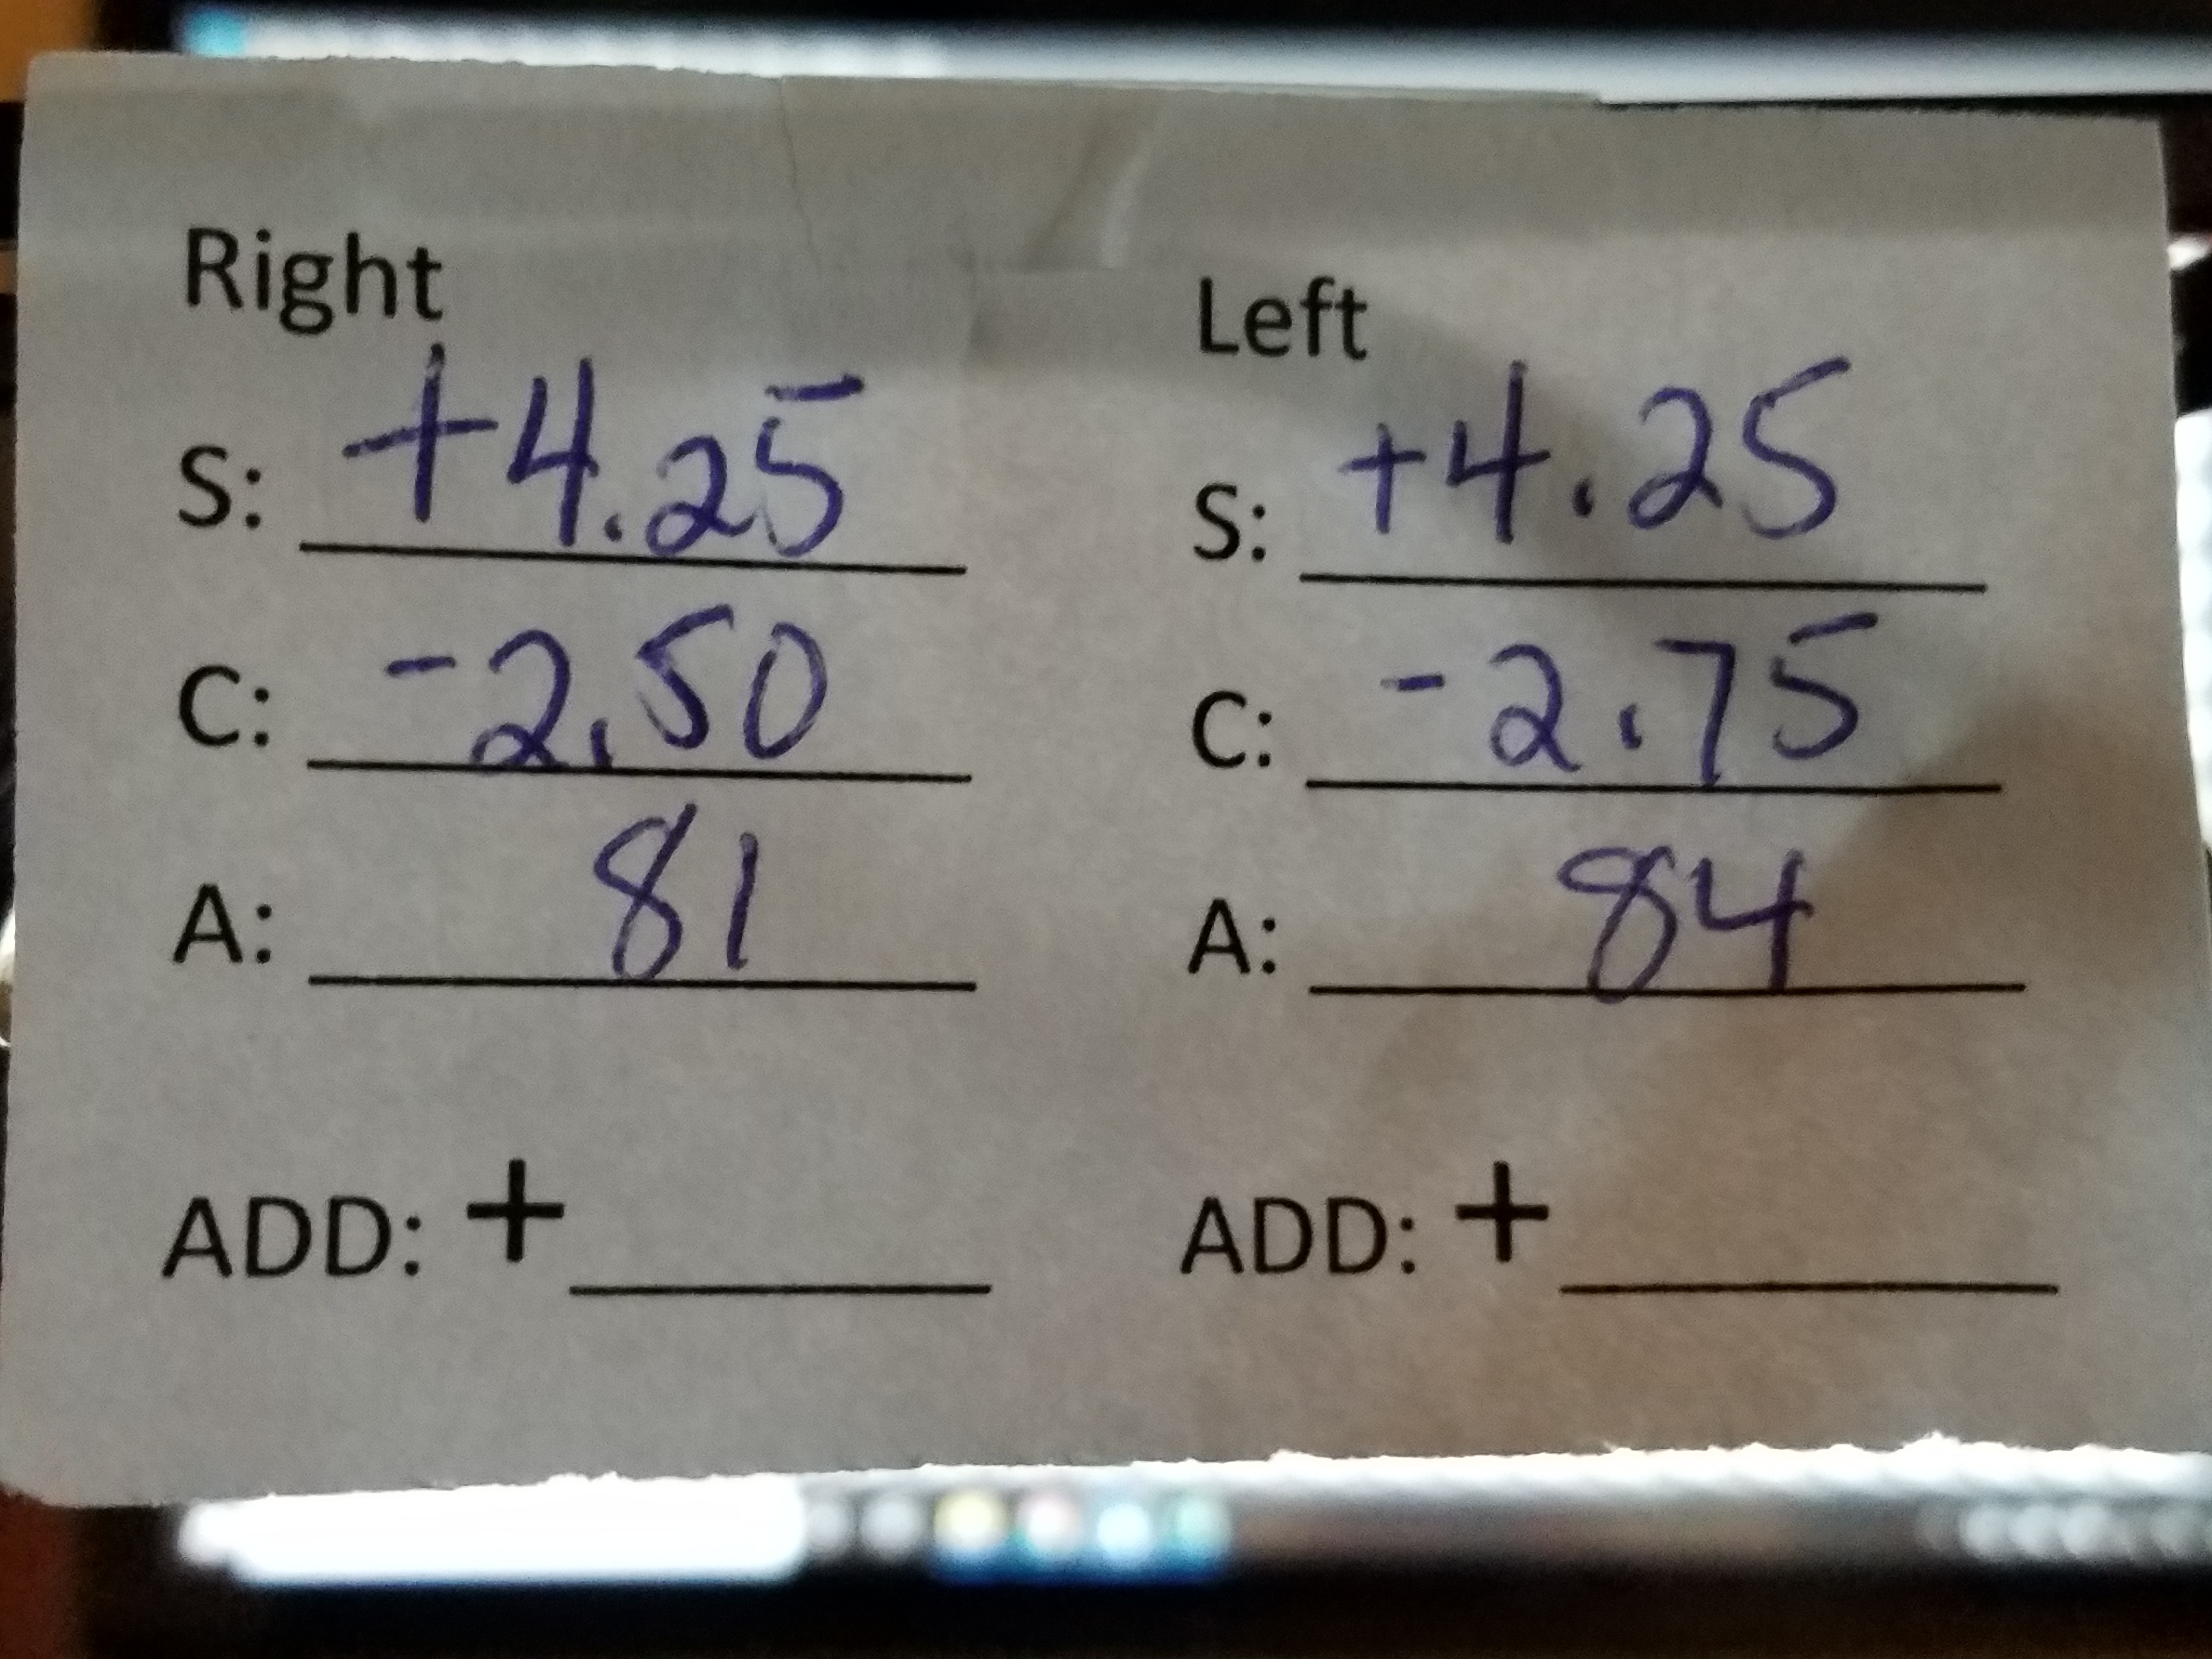 Right
S: +4.25
C: -2.50
A: 81
ADD: +
Left
S: +4.25
C: -2.75
A: 84
ADD: +